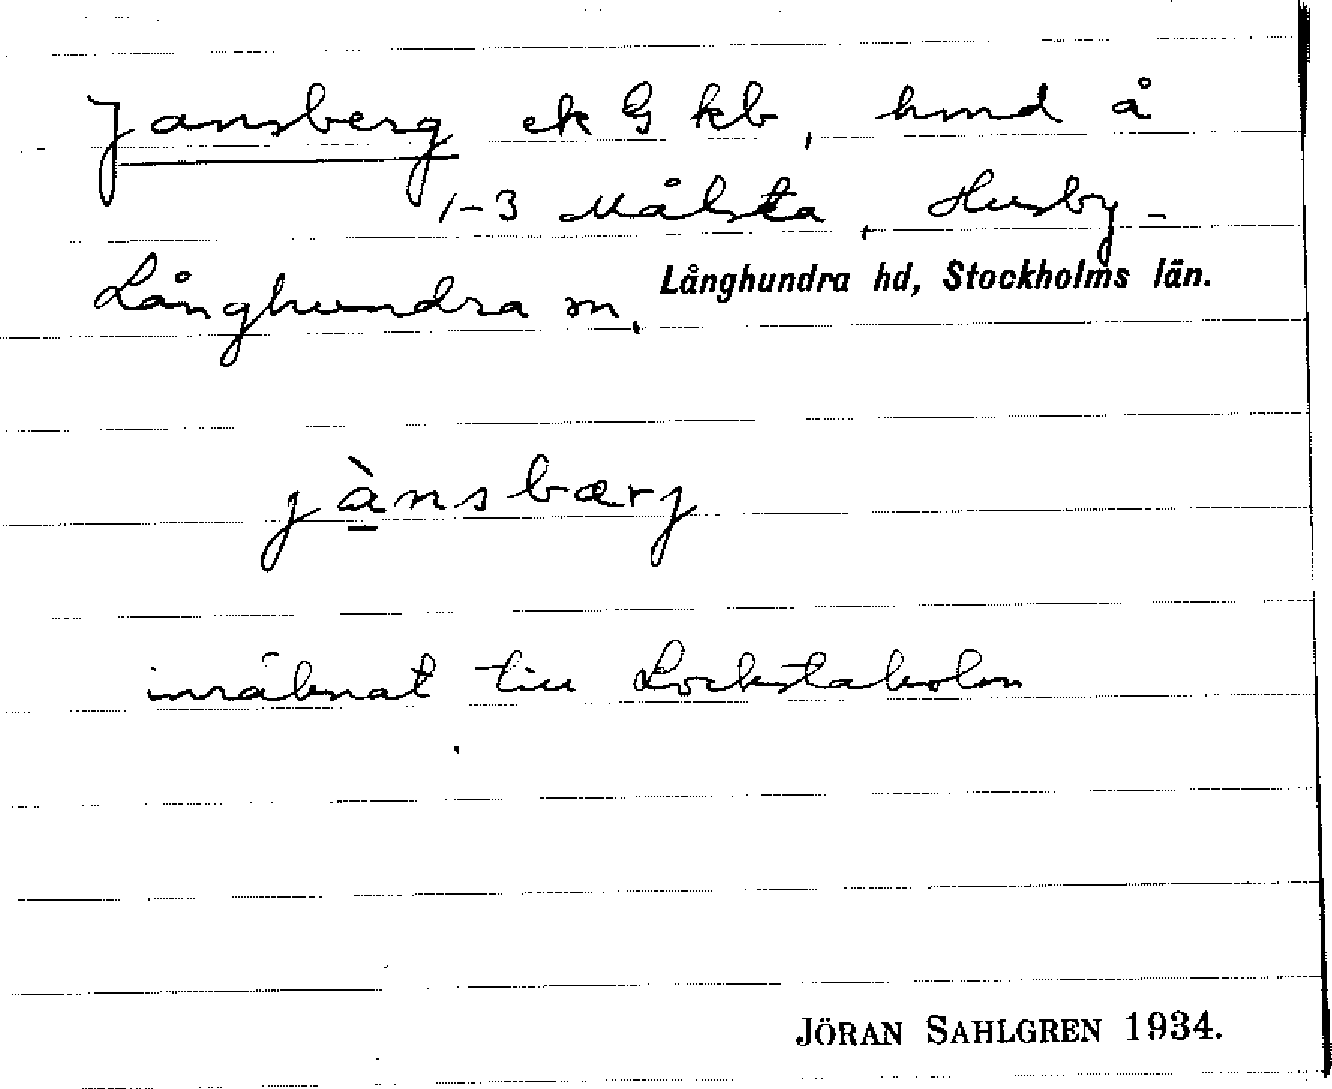 Jansberg ek G kb, hmd å
1-3 Målsta, Husby-
Långhundra sn, Långhundra hd, Stockholms län.
jànsbærj
inräknat till Lockstaholm
JÖRAN SAHLGREN 1934.